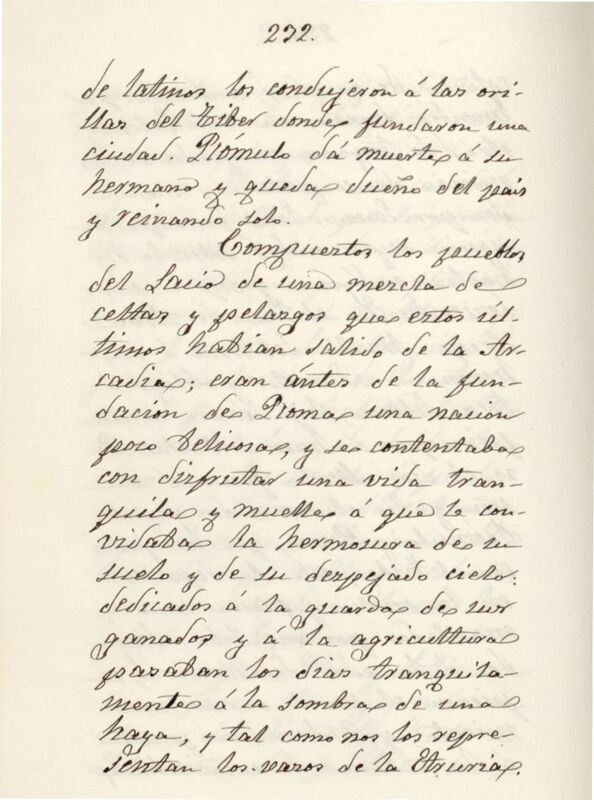 232.
de latinos los condujeron á las ori-
llas del Tiber donde fundaron una
ciudad. Rómulo dá muerte á su
hermano y queda dueño del pais
y reinando solo.
Compuestos los pueblos
del Lacio de una mezcla de
celtas y pelasgos que estos úl-
timos habian salido de la Ar-
cadia; eran ántes de la fun-
dacion de Roma una nacion
poco belicosa, y se contentaba
con disfrutar una vida tran-
quila y muelle á que le con-
vidaba la hermosura de su
suelo y de su despejado cielo:
dedicados á la guarda de sus
ganados y á la agricultura
pasaban los dias tranquila-
mente á la sombra de una
haya, y tal como nos los repre-
sentan los vasos de la Etruria.